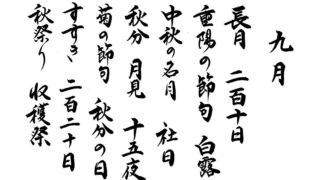 九月
長月 二百十日
重陽の節句 白露
中秋の名月 社日
秋分 月見 十五夜
菊の節句 秋分の日
すすき 二百二十日
秋祭り 収穫祭